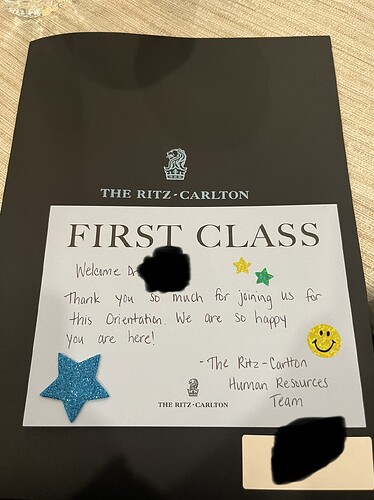 THE RITZ-CARLTON
FIRST CLASS
Welcome
Thank you so much for joining us for
this Orientation. We are so happy
you are here!
- The Ritz-Carlton
Human Resources
Team
THE RITZ-CARLTON